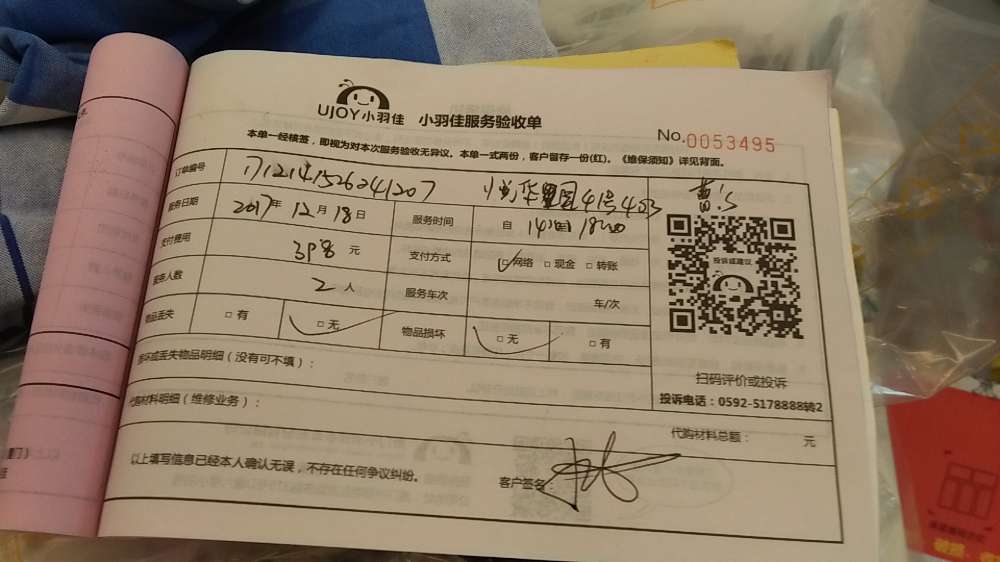 UJOY小羽佳 小羽佳服务验收单
No.0053495
本单一经核签，即视为对本次服务验收无异议。本单一式两份，客户留存一份(红)。《维保须知》详见背面。
订单编号 1712141526241207 华 园41号403
服务日期 2017年12月18日 服务时间 自
投诉或建议
支付费用 398元 支付方式 □网络 □现金 □转账
服务人数 2人 服务车次 车/次
物品丢失 □有 □无 物品损坏 □无 □有
损坏或丢失物品明细（没有可不填）：
扫码评价或投诉
投诉电话：0592-5178888转2
代购材料明细（维修业务）：
代购材料总额： 元
以上填写信息已经本人确认无误，不存在任何争议纠纷。
客户签名：